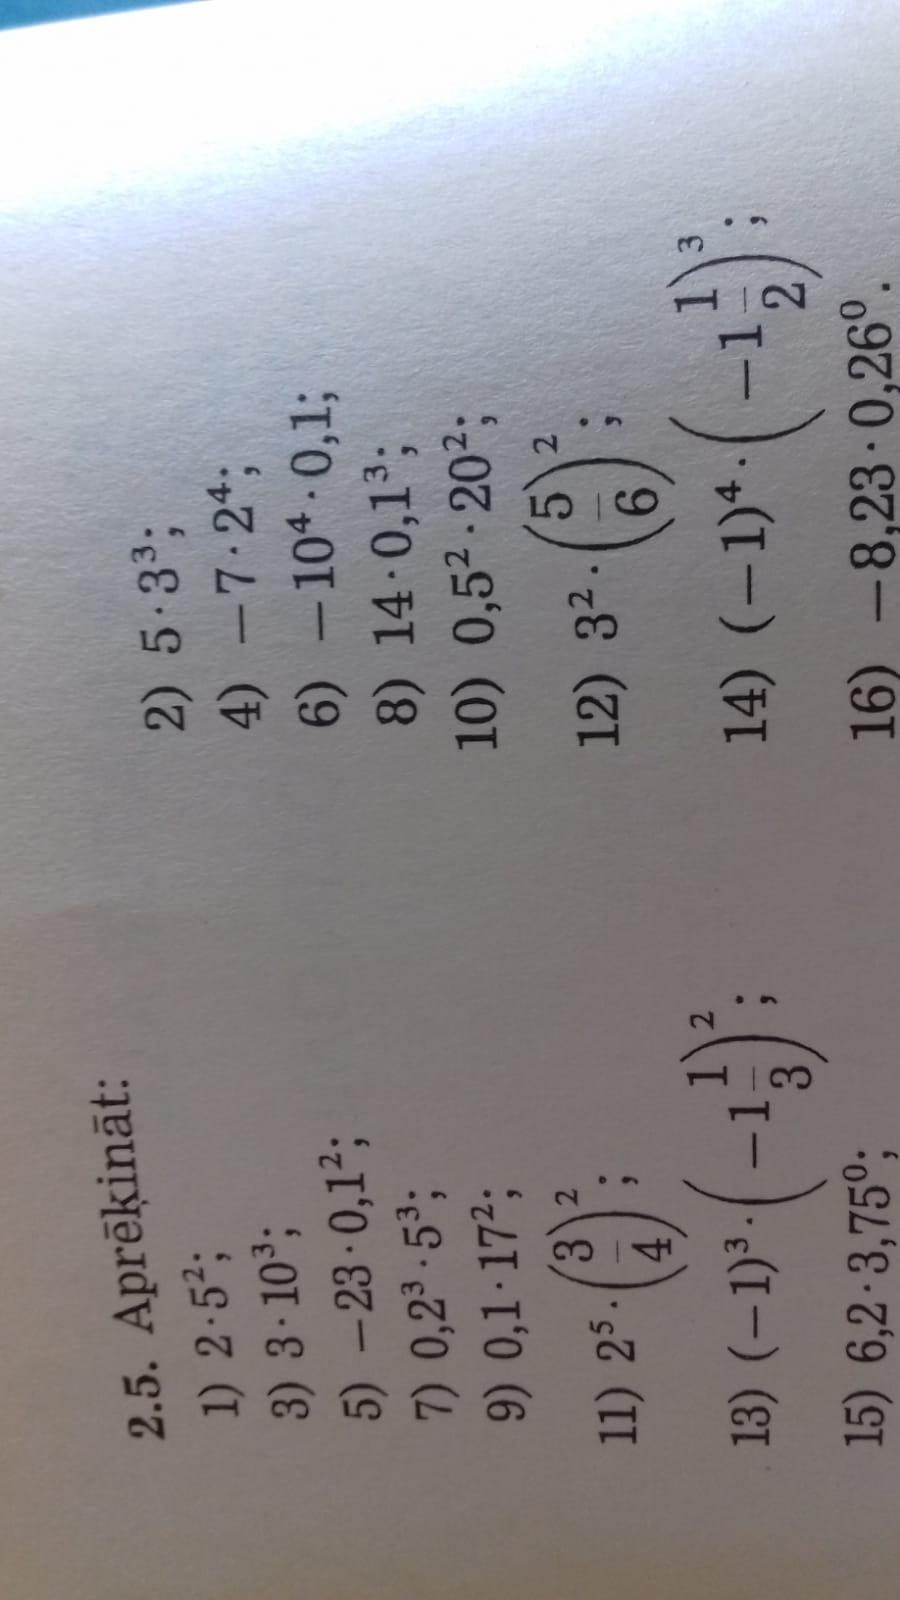 2.5. Aprēķināt:
1) 2·5²; 2) 5·3³;
3) 3·10³; 4) −7·2⁴;
5) −23·0,1²; 6) −10⁴·0,1;
7) 0,2³·5³; 8) 14·0,1³;
9) 0,1·17²; 10) 0,5²·20²;
11) 2⁵·(3/4)²; 12) 3²·(5/6)²;
13) (−1)³·(−1 1/3)²; 14) (−1)⁴·(−1 1/2)³;
15) 6,2·3,75⁰; 16) −8,23·0,26⁰.